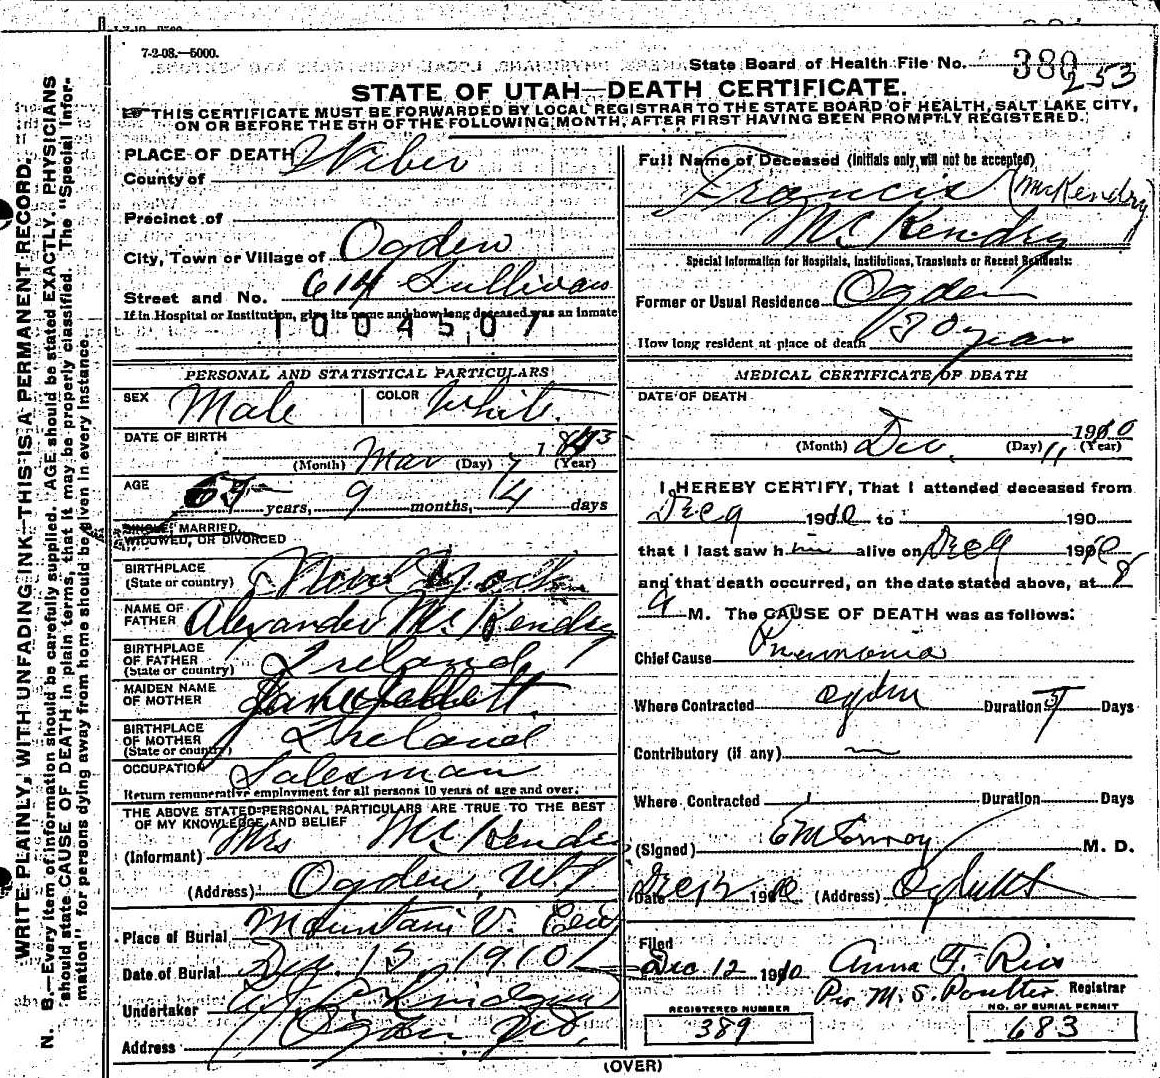 7-2-08.—5000.
State Board of Health File No. 380
253
STATE OF UTAH—DEATH CERTIFICATE.
THIS CERTIFICATE MUST BE FORWARDED BY LOCAL REGISTRAR TO THE STATE BOARD OF HEALTH, SALT LAKE CITY,
ON OR BEFORE THE 5TH OF THE FOLLOWING MONTH, AFTER FIRST HAVING BEEN PROMPTLY REGISTERED.
WRITE PLAINLY, WITH UNFADING INK—THIS IS A PERMANENT RECORD.
N. B.—Every item of information should be carefully supplied. AGE should be stated EXACTLY. PHYSICIANS
should state CAUSE OF DEATH in plain terms, that it may be properly classified. The "Special Infor-
mation" for persons dying away from home should be given in every instance.
PLACE OF DEATH
County of Weber
Precinct of
City, Town or Village of Ogden
Street and No. 614 Sullivan
If in Hospital or Institution, give its name and how long deceased was an inmate
1004507
PERSONAL AND STATISTICAL PARTICULARS
SEX Male COLOR White
DATE OF BIRTH
(Month) Mar (Day) 7 (Year)
AGE years, 9 months, 4 days
SINGLE, MARRIED,
WIDOWED, OR DIVORCED
BIRTHPLACE
(State or country) New York
NAME OF
FATHER Alexander McKendry
BIRTHPLACE
OF FATHER
(State or country) Ireland
MAIDEN NAME
OF MOTHER
BIRTHPLACE
OF MOTHER
(State or country) Ireland
OCCUPATION Salesman
Return remunerative employment for all persons 10 years of age and over:
THE ABOVE STATED PERSONAL PARTICULARS ARE TRUE TO THE BEST
OF MY KNOWLEDGE AND BELIEF
(Informant) Mrs McKendry
(Address) Ogden, Ut
Place of Burial Mountain V. Cem
Date of Burial 1910
Undertaker
Address Ogden
Full Name of Deceased (initials only, will not be accepted)
Francis (McKendry)
McKendry
Special Information for Hospitals, Institutions, Transients or Recent Residents:
Former or Usual Residence Ogden
How long resident at place of death 20 years
MEDICAL CERTIFICATE OF DEATH
DATE OF DEATH
(Month) Dec. (Day) 11 1910 (Year)
I HEREBY CERTIFY, That I attended deceased from
Dec 9 1910 to 190
that I last saw him alive on Dec 9 1910
and that death occurred, on the date stated above, at 8
a M. The CAUSE OF DEATH was as follows:
Chief Cause Pneumonia
Where Contracted Ogden Duration 5 Days
Contributory (if any)
Where Contracted Duration Days
(Signed) E M Conroy M. D.
Date Dec 12 1910 (Address) Ogden Ut
Filed
Dec 12 1910 Anna F. Rice
Per M. S. Poulter Registrar
REGISTERED NUMBER
389
NO. OF BURIAL PERMIT
683
(OVER)